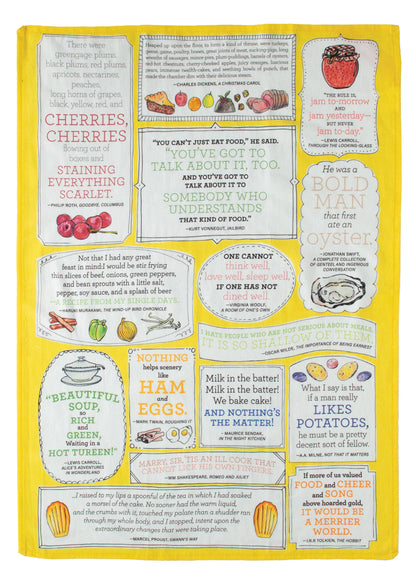 There were
greengage plums,
black plums, red plums,
apricots, nectarines,
peaches,
long horns of grapes,
black, yellow, red, and
CHERRIES,
CHERRIES
flowing out of
boxes and
STAINING
EVERYTHING
SCARLET.
- PHILIP ROTH, GOODBYE, COLUMBUS
Heaped up upon the floor, to form a kind of throne, were turkeys,
geese, game, poultry, brawn, great joints of meat, sucking-pigs, long
wreaths of sausages, mince-pies, plum-puddings, barrels of oysters,
red-hot chestnuts, cherry-cheeked apples, juicy oranges, luscious
pears, immense twelfth-cakes, and seething bowls of punch, that
made the chamber dim with their delicious steam.
—CHARLES DICKENS, A CHRISTMAS CAROL
"THE RULE IS,
jam to-morrow
and
jam yesterday–
BUT NEVER
jam to-day."
–LEWIS CARROLL,
THROUGH THE LOOKING-GLASS
"YOU CAN'T JUST EAT FOOD," HE SAID.
"YOU'VE GOT TO
TALK ABOUT IT, TOO.
AND YOU'VE GOT
TO TALK ABOUT IT TO
SOMEBODY WHO
UNDERSTANDS
THAT KIND OF FOOD."
–KURT VONNEGUT, JAILBIRD
He was a
BOLD
MAN
that first
ate an
oyster.
-JONATHAN SWIFT,
A COMPLETE COLLECTION
OF GENTEEL AND INGENIOUS
CONVERSATION
Not that I had any great
feast in mind. I would be stir frying
thin slices of beef, onions, green peppers,
and bean sprouts with a little salt,
pepper, soy sauce, and a splash of beer
–A RECIPE FROM MY SINGLE DAYS.
–HARUKI MURAKAMI, THE WIND-UP BIRD CHRONICLE
ONE CANNOT
think well,
love well, sleep well,
IF ONE HAS NOT
dined well.
–VIRGINIA WOOLF,
A ROOM OF ONE'S OWN
I HATE PEOPLE WHO ARE NOT SERIOUS ABOUT MEALS.
IT IS SO SHALLOW OF THEM.
–OSCAR WILDE, THE IMPORTANCE OF BEING EARNEST
"BEAUTIFUL
SOUP,
so
RICH
and
GREEN,
Waiting in a
HOT TUREEN!"
–LEWIS CARROLL,
ALICE'S ADVENTURES
IN WONDERLAND
NOTHING
helps scenery
like
HAM
and
EGGS.
–MARK TWAIN, ROUGHING IT
Milk in the batter!
Milk in the batter!
We bake cake!
AND NOTHING'S
THE MATTER!
–MAURICE SENDAK,
IN THE NIGHT KITCHEN
What I say is that,
if a man really
LIKES
POTATOES,
he must be a pretty
decent sort of fellow.
–A.A. MILNE, NOT THAT IT MATTERS
MARRY, SIR, 'TIS AN ILL COOK THAT
CANNOT LICK HIS OWN FINGERS.
–WM SHAKESPEARE, ROMEO AND JULIET
...I raised to my lips a spoonful of the tea in which I had soaked
a morsel of the cake. No sooner had the warm liquid,
and the crumbs with it, touched my palate than a shudder ran
through my whole body, and I stopped, intent upon the
extraordinary changes that were taking place.
–MARCEL PROUST, SWANN'S WAY
If more of us valued
FOOD and CHEER
and SONG
above hoarded gold,
IT WOULD BE
A MERRIER
WORLD.
–J.R.R TOLKIEN, THE HOBBIT